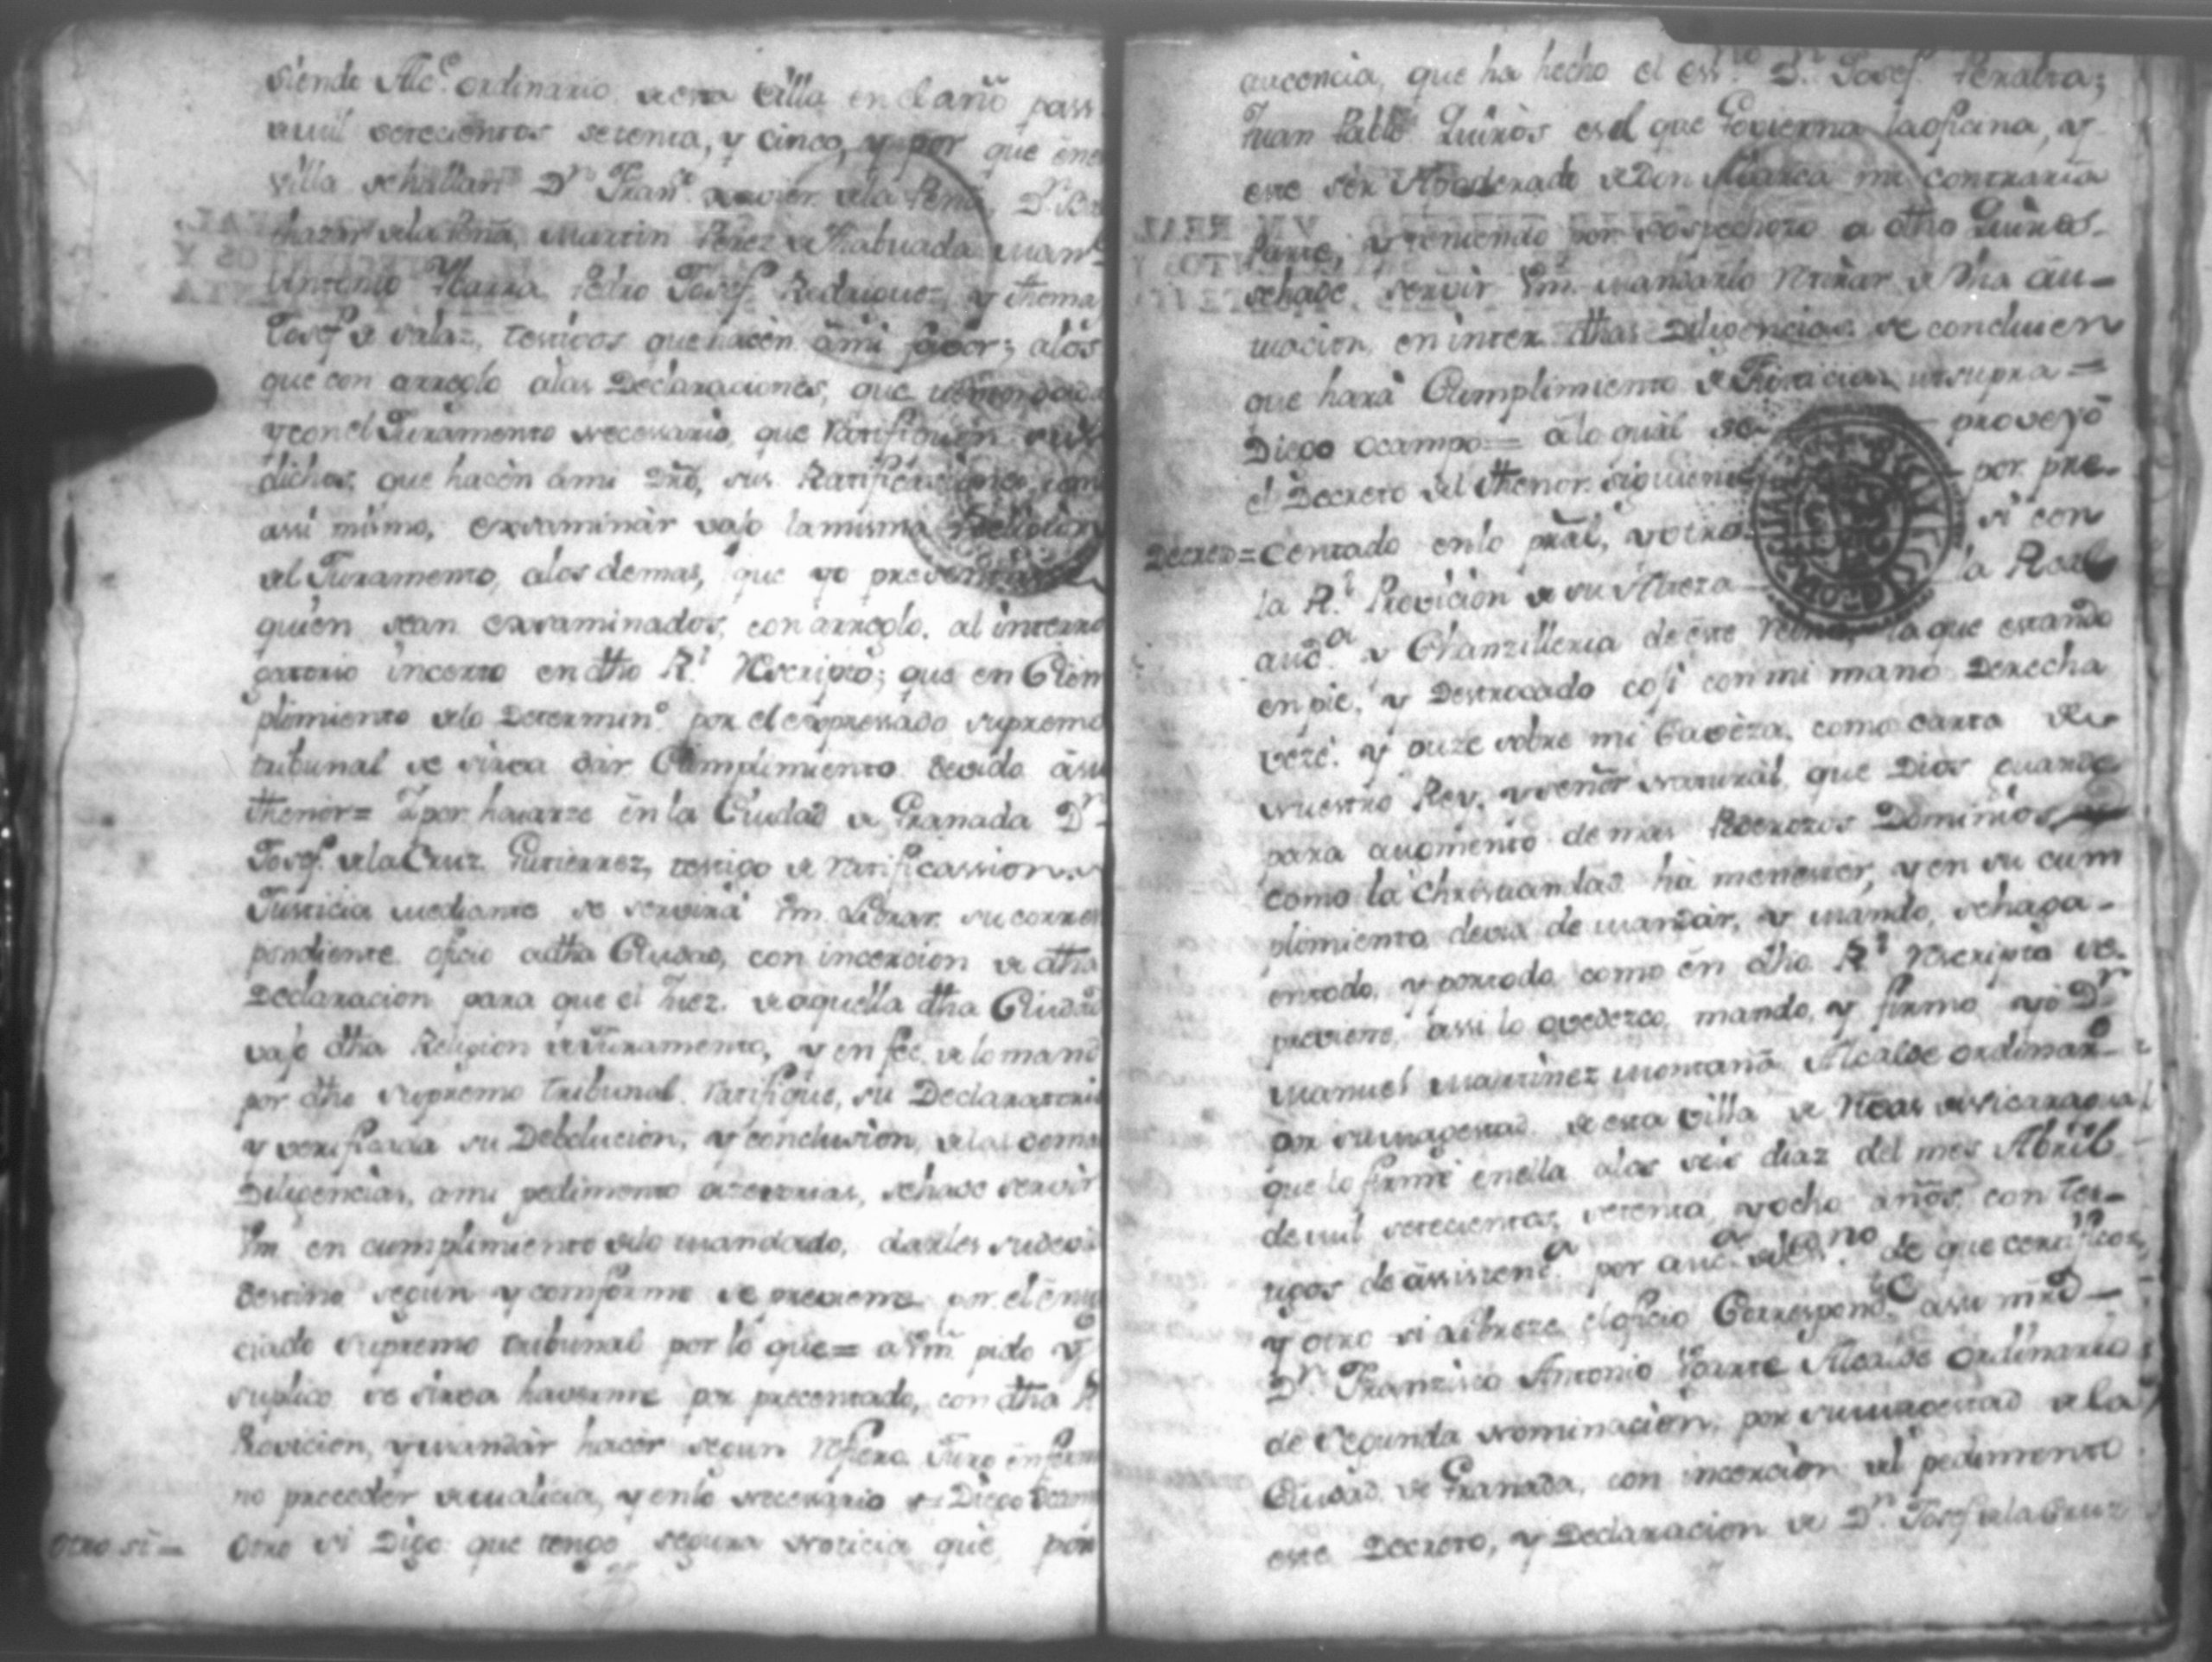 siendo Alc.e ordinario de esta villa en el año pass
de mil setecientos setenta, y cinco, y por que en e
villa se hallan Dn Franco. Xavier de la Peña, Dn. Bal
thazar de la Peña, Martin Perez de Thabuada Man.l
Antonio Ybarra Pedro Josef Rodriguez, y thoma
Josef de salaz, testigos que hacen â mi favor; alos
que con arreglo alas Declaraciones, que
y con el Juramento necesario, que Ratifiquen sus
dichos, que hacen âmi Dro, sus Ratificaciones, como
assi mismo, exsaminar vajo la misma Religion
del Juramento, alos demas, que yo
quien sean exsaminados, con arreglo. al interro
gatorio incerto en dho Rl. Rescripto; que en Cum
plimiento delo Determino. por el expressado supremo
tribunal se sirva dar Cumplimiento devido âsu
thenor= Y por hayarze en la Ciudad de Granada Dn.
Josef. de la Cruz Gutierrez, testigo de ratificassion. y
Justicia mediante se servirá Vm. Librar su corres
pondiente oficio adha Ciudad, con incercion de dha
Declaracion para que el Juez. de aquella dha Ciudad
vajo dha Religion de Juramento, y en fee de lo mand
por dho supremo tribunal. ratifique, su Declaratoria
y verificada su Debolucion, y conclusion, de las dema
Diligencias, ami pedimento se hade servir
Vm en cumplimiento delo mandado, darles su devi
destino segun y comforme se previene por el enu
ciado supremo tribunal por lo que= a Vm. pido y
suplico se sirva haverme por precentado, con dha R
Provicion, y mandar hacer segun refiero. Juro en form
no proceder de malicia, y en lo necesario = Diego Ocam
Otro si= Otro si Digo que tengo segura noticia que, por
aucencia, que ha hecho el essno. Dn. Josef. Peralta;
Juan Pablo Quiros es el que Govierna la oficina, y
este ser Apoderado de Don mi contraria
Parte, y teniendo por sospechozo a dho Quiros
se hade servir Vm. mandarlo retirar de dha âu-
tuacion, en inter dhas Diligencias se concluien
que hará Cumplimiento de Justicia utsupra=
Diego Ocampo= alo qual se proveyó
el Decreto del thenor siguiente por pre-
Decreto= centado en lo pral, y otro si con
la Rl. Provicion de su Alteza la Real
aud.a y Chanzilleria de este Reino, la que estando
en pie, y Destocado cojí con mi mano Derecha
vezé, y puze sobre mi Caveza, como carta de
nuestro Rey, y señor natural, que Dios guarde
para augmento de mas Poderozos Dominios,
como la Christiandad ha menester, y en su cum
plimiento devia de mandar, y mando, se haga
en todo, y por todo, como en dho Rl. Rescripto se
previene, assi lo ovedezco, mando, y firmo yo Dn.
Manuel Martinez Montaña Alcalde ordinaro
por su magestad. de esta villa de Nicaragua
que lo firmé en ella alos seis diaz del mes Abril
de mil setecientos, setenta, y ocho años, con tes-
tigos de âssistenca. por auca. del essno. de que certifico=
y otro si librese el oficio Correspondte. assu mrd
Dn. Franzisco Antonio Alcalde Ordinario
de segunda nominacion, por su magestad de la
Ciudad de Granada, con incercion del pedimento
este Decreto, y Declaracion de Dn. Josef de la Cruz